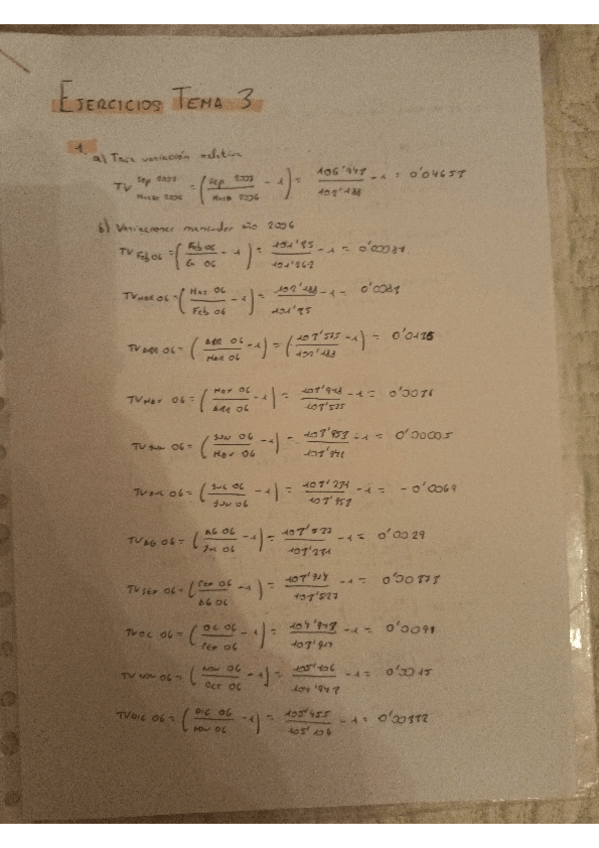 EJERCICIOS TEMA 3
1.
a) Tasa variación relativa
TV Sep 2007 / Marzo 2006 = (Sep 2007 / Marzo 2006 - 1) = 106'947 / 102'188 - 1 = 0'04657
b) Variaciones mensuales año 2006
TV Feb 06 = (Feb 06 / En 06 - 1) = 101'35 / 101'262 - 1 = 0'00087
TV MAR 06 = (Mar 06 / Feb 06 - 1) = 102'188 / 101'35 - 1 = 0'0083
TV ABR 06 = (ABR 06 / Mar 06 - 1) = (103'575 / 102'188 - 1) = 0'0136
TV MAY 06 = (MAY 06 / ABR 06 - 1) = 103'948 / 103'575 - 1 = 0'0036
TV JUN 06 = (JUN 06 / MAY 06 - 1) = 103'953 / 103'948 - 1 = 0'00005
TV JUL 06 = (JUL 06 / JUN 06 - 1) = 103'231 / 103'953 - 1 = - 0'0069
TV AG 06 = (AG 06 / JUL 06 - 1) = 103'527 / 103'231 - 1 = 0'0029
TV SEP 06 = (SEP 06 / AG 06 - 1) = 103'527 - 1 =
TV OC 06 = (OC 06 / SEP 06 - 1) = 104'947 - 1 = 0'0098
TV NOV 06 = (NOV 06 / OCT 06 - 1) = 105'106 / 104'947 - 1 = 0'0015
TV DIC 06 = (DIC 06 / NOV 06 - 1) = 105'455 / 105'106 - 1 = 0'00332